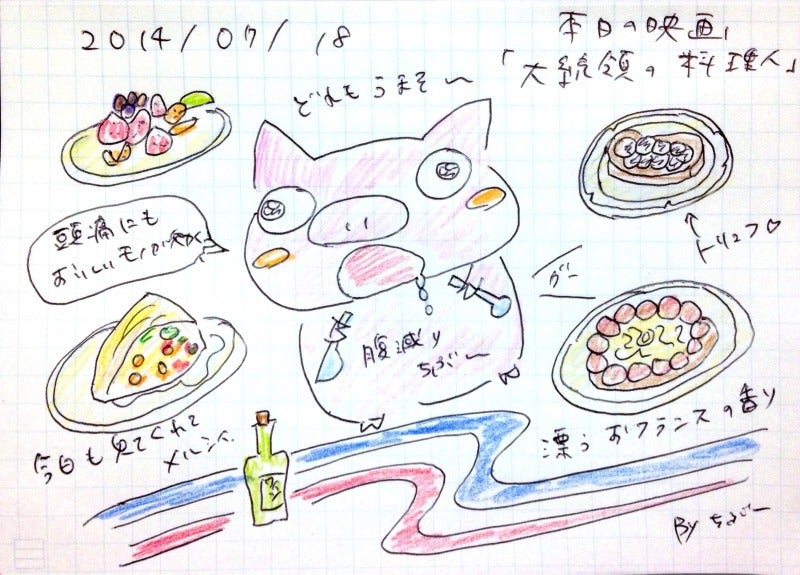 2014/07/18
本日の映画
「大統領の料理人」
どれもうまそ〜
頭痛にも
おいしいモノが効く
↑
トリュフ♡
グー
腹減り
ちよぶー
今日も見てくれて
メルシー
漂うおフランスの香り
By ちよぶー